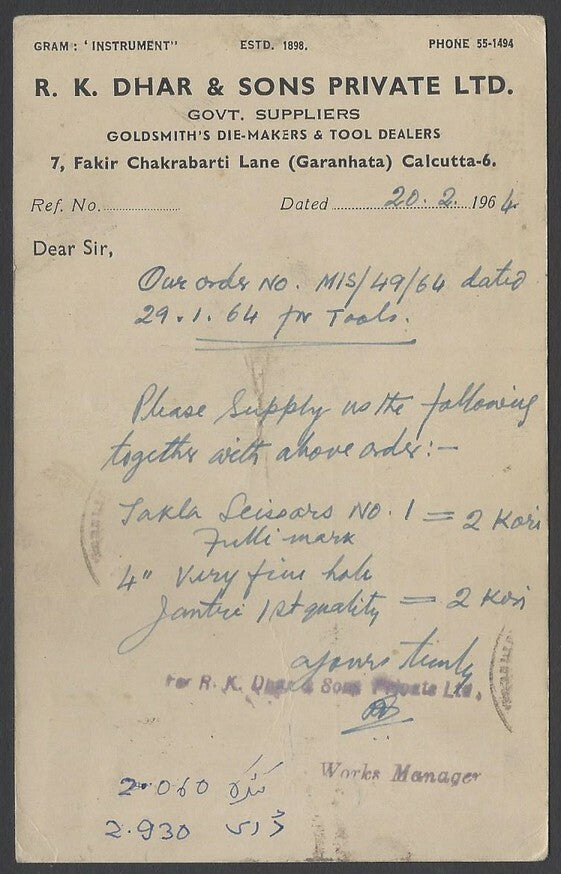 GRAM: 'INSTRUMENT" ESTD. 1898. PHONE 55-1494
R. K. DHAR & SONS PRIVATE LTD.
GOVT. SUPPLIERS
GOLDSMITH'S DIE-MAKERS & TOOL DEALERS
7, Fakir Chakrabarti Lane (Garanhata) Calcutta-6.
Ref. No. Dated 20.2.1964
Dear Sir,
Our order No. MIS/49/64 dated
29.1.64 for Tools.
Please Supply us the following
together with above order:-
Takla Scissors No. 1 = 2 Kori
Fulli mark
4" Very fine hole
Jantri 1st quality = 2 Kori
yours truly
For R. K. Dhar & Sons Private Ltd.
Works Manager
2.060
2.930